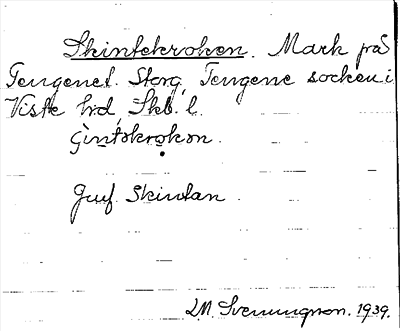 Skintekroken. Mark på
Tengene l. Storg, Tengene socken i
Viste hrd, Skb. l.
Jmf. Skintan.
L.M. Svenungsson. 1939.